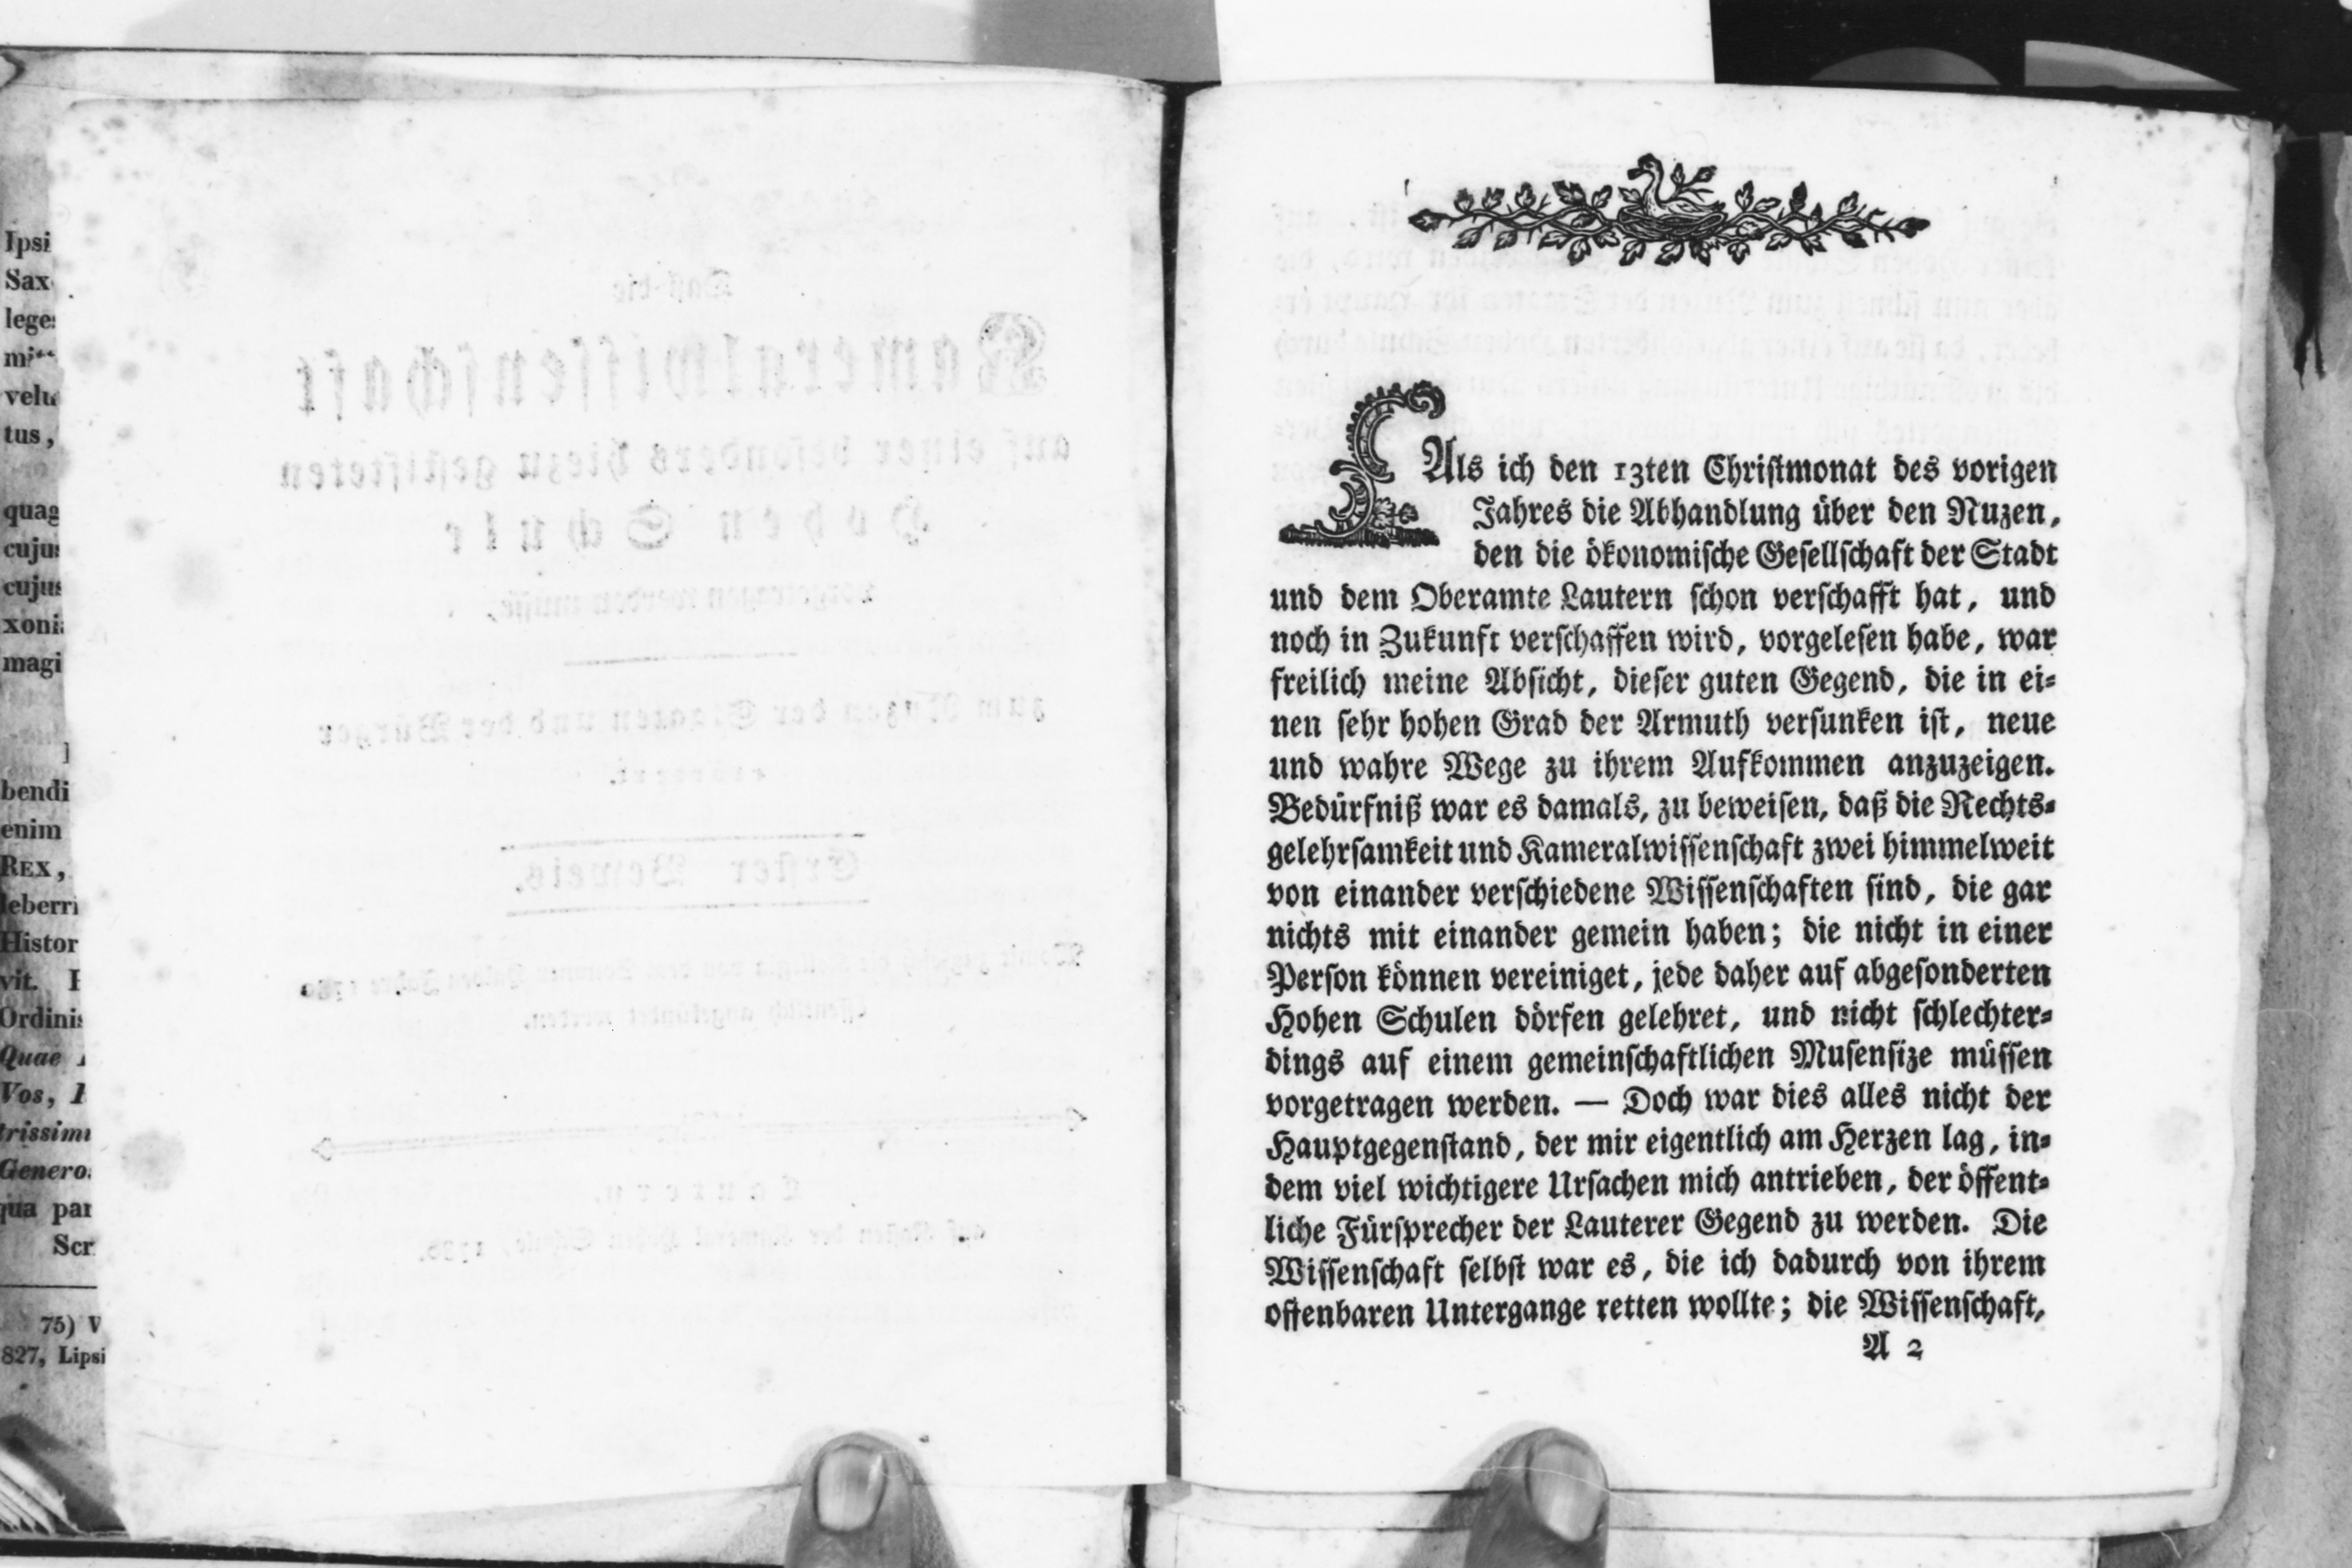 Ipsi
Sax
leges
velu
tus,
quag
cujus
cujus
magi
bendi
enim
REX,
Histor
vit.
Ordinis
Quae
Vos,
trissimi
Genero
qua par
Scr
75) V
827, Lipsi
Als ich den 13ten Chriſtmonat des vorigen
Jahres die Abhandlung über den Nuzen,
den die ökonomiſche Geſellſchaft der Stadt
und dem Oberamte Lautern ſchon verſchafft hat, und
noch in Zukunft verſchaffen wird, vorgeleſen habe, war
freilich meine Abſicht, dieſer guten Gegend, die in ei⸗
nen ſehr hohen Grad der Armuth verſunken iſt, neue
und wahre Wege zu ihrem Aufkommen anzuzeigen.
Bedürfniß war es damals, zu beweiſen, daß die Rechts⸗
gelehrſamkeit und Kameralwiſſenſchaft zwei himmelweit
von einander verſchiedene Wiſſenſchaften ſind, die gar
nichts mit einander gemein haben; die nicht in einer
Perſon können vereiniget, jede daher auf abgeſonderten
Hohen Schulen dörfen gelehret, und nicht ſchlechter⸗
dings auf einem gemeinſchaftlichen Muſenſize müſſen
vorgetragen werden. — Doch war dies alles nicht der
Hauptgegenſtand, der mir eigentlich am Herzen lag, in⸗
dem viel wichtigere Urſachen mich antrieben, der öffent⸗
liche Fürſprecher der Lauterer Gegend zu werden. Die
Wiſſenſchaft ſelbſt war es, die ich dadurch von ihrem
offenbaren Untergange retten wollte; die Wiſſenſchaft,
A 2